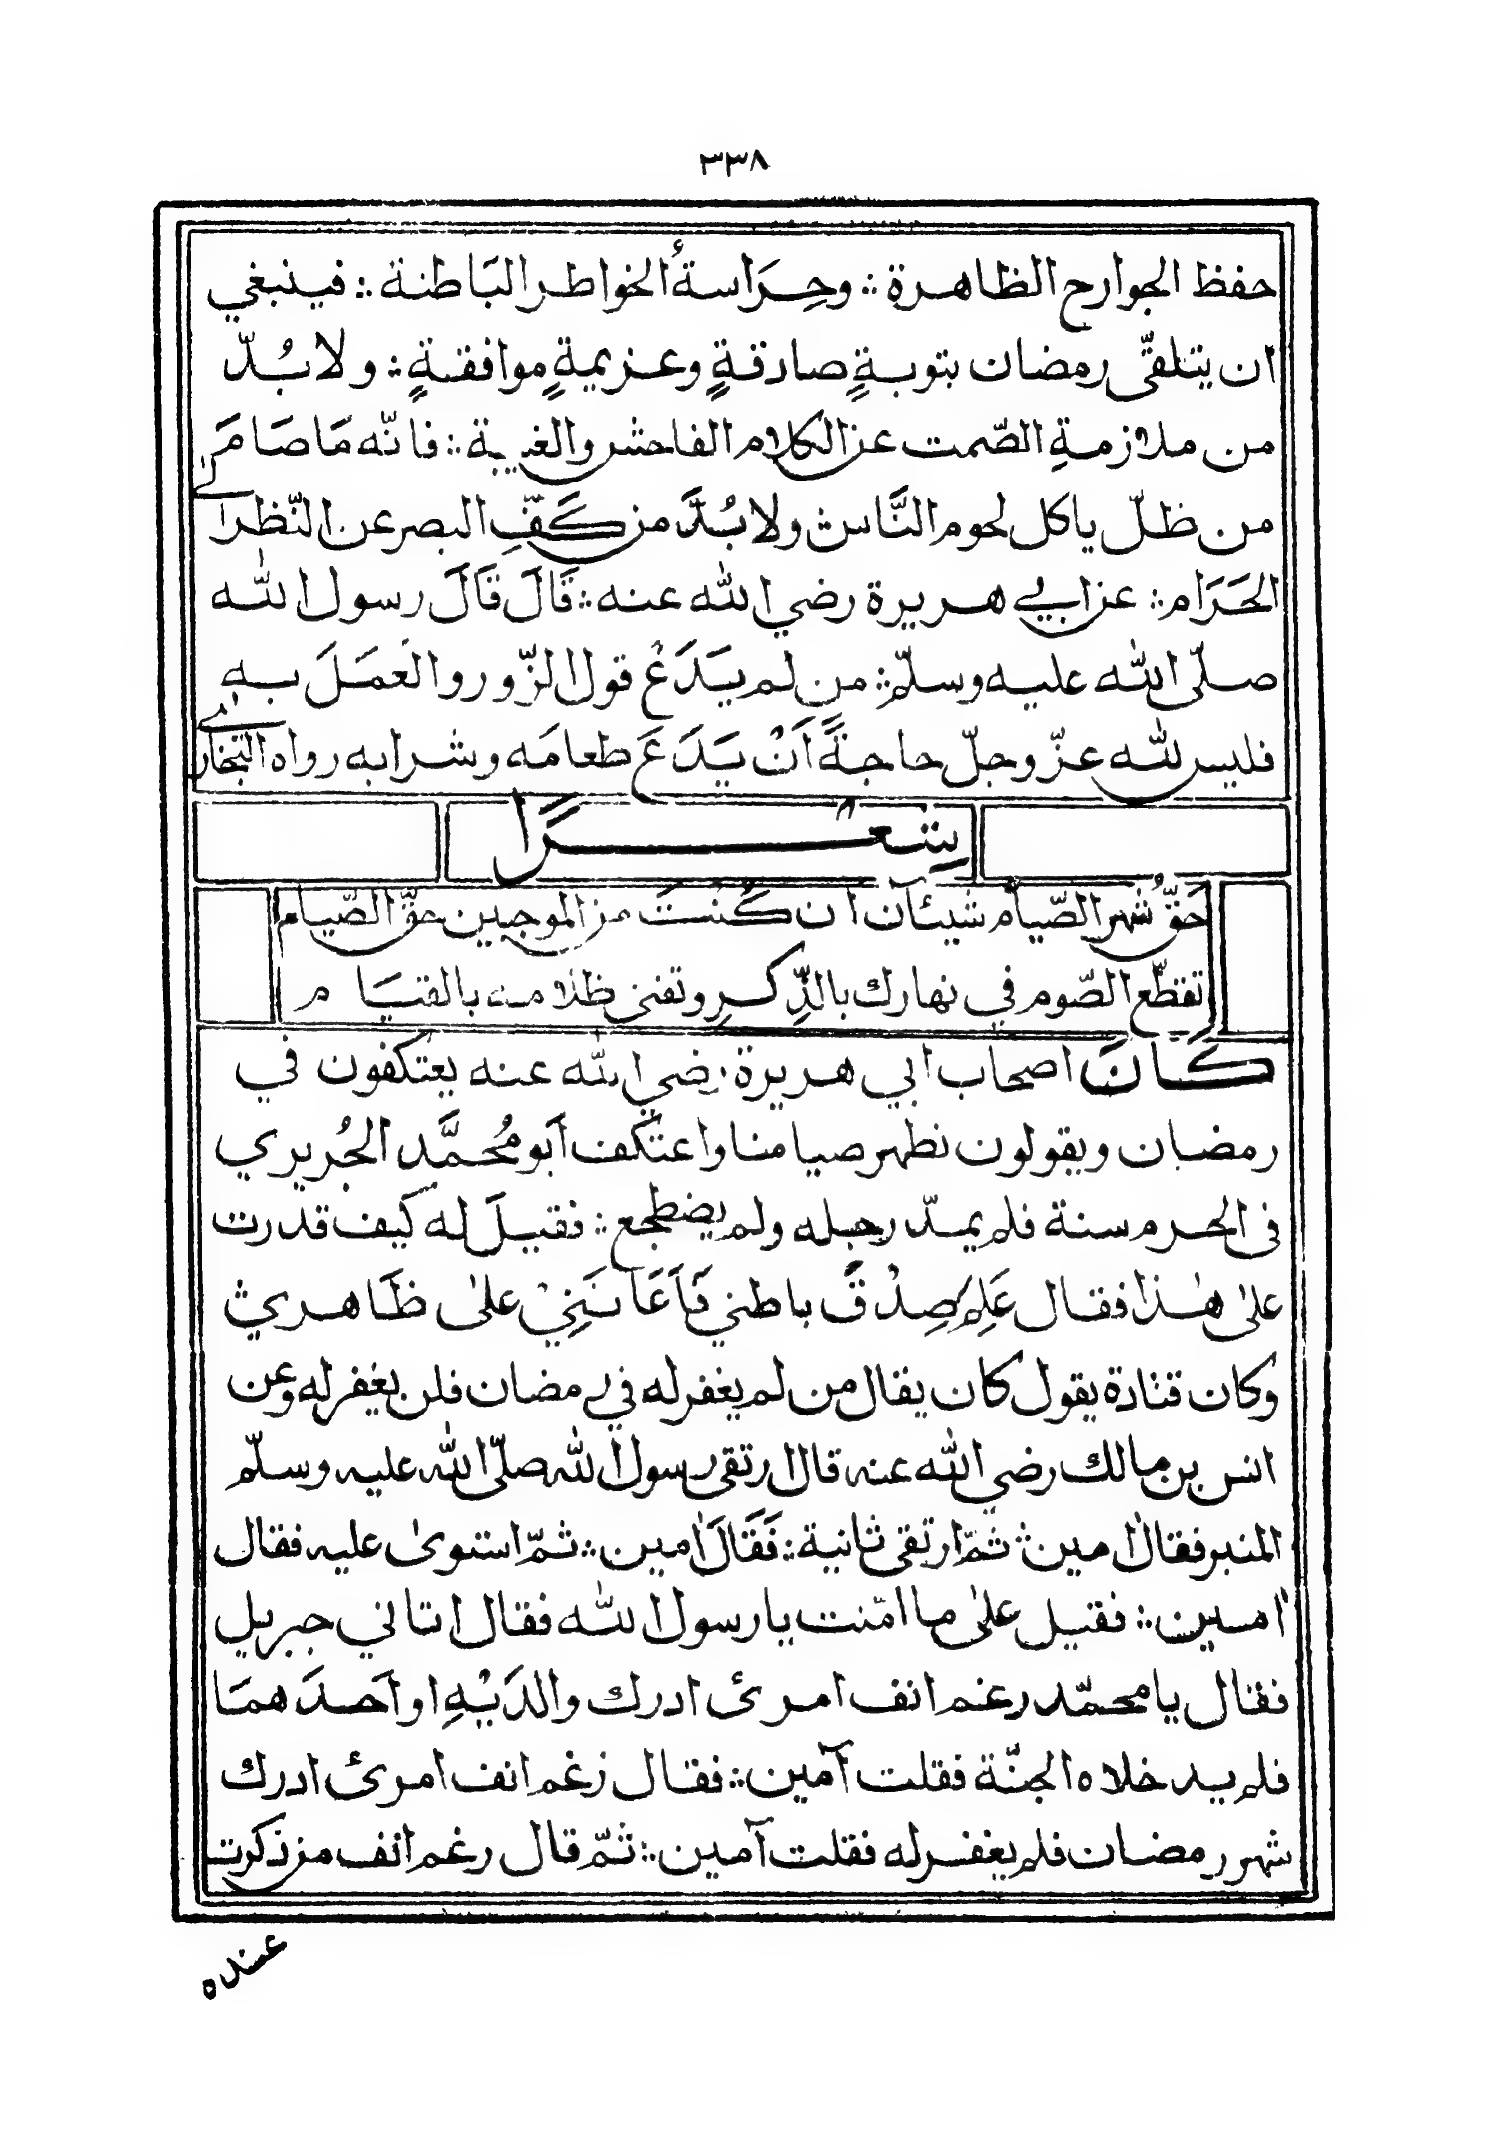 ٣٣٨
حفظ الجوارح الظاهرة ؞ وحِرَاسةُ الخواطر البَاطنة ؞ فينبغي
ان يتلقّى رمضان بتوبةٍ صادقةٍ وعزيمةٍ موافقةٍ ؞ ولا بُدّ
من ملازمةِ الصّمت عن الكلام الفاحش والغيبة ؞ فانّه مَا صَامَ
من ظلّ ياكل لحوم النَّاس ولا بُدَّ من كَفِّ البصر عن النّظر الى
الحَرَام ؞ عن ابي هريرة رضي الله عنه ؞ قَالَ قَالَ رسول الله
صلّى الله عليه وسلّم ؞ من لم يَدَعْ قول الزّور والعَمَلَ بهِ
فليس لله عزّ وجلّ حاجةً اَنْ يَدَعَ طعامَه وشرابه رواه البخاري
شِعْرًا
حَقُّ شهر الصّيام شيئان ان كُنتَ من الموجبين حقّ الصّيام
تقطّع الصّوم في نهارك بالذِّكرِ وتفنى ظلامه بالقيَام
كَانَ اصحاب ابي هريرة رضي الله عنه يعتكفون في
رمضان ويقولون نطهر صيامنا واعتكف اَبو مُحمَّد الجُريري
في الحرم سنة فلم يمدّ رجله ولم يضطجع ؞ فقيلَ له كيف قدرت
على هٰذا فقال عَلِمَ صِدْقَ باطني فَاَعَانَنِيْ على ظَاهري
وكان قتادة يقول كان يقال من لم يغفر له في رمضان فلن يغفر له وعن
انس بن مالك رضي الله عنه قال ارتقى رسول الله صلّى الله عليه وسلّم
المنبر فقال اٰمين ثمّ ارتقى ثانية ؞ فَقَالَ اٰمين ؞ ثمّ استوىٰ عليه فقال
اٰمين ؞ فقيل على ما امّنت يا رسول الله فقال اتاني جبريل
فقال يا محمّد رغم انف امرئ ادرك والدَيْهِ او اَحدَهمَا
فلم يدخلاه الجنّة فقلت آمين ؞ فقال رَغم انف امرئ ادرك
شهر رمضان فلم يغفر له فقلت آمين ؞ ثمّ قال رغم انف من ذكرت
عنده